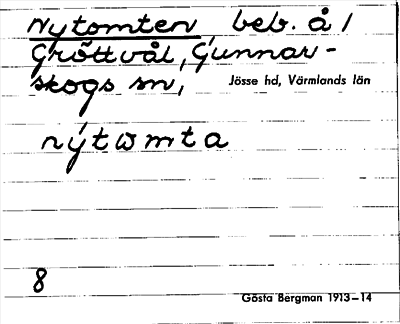 Nytomten, beb. å 1
Gröttvål, Gunnar-
skogs sn, Jösse hd, Värmlands län
nýtωmta
8
Gösta Bergman 1913–14